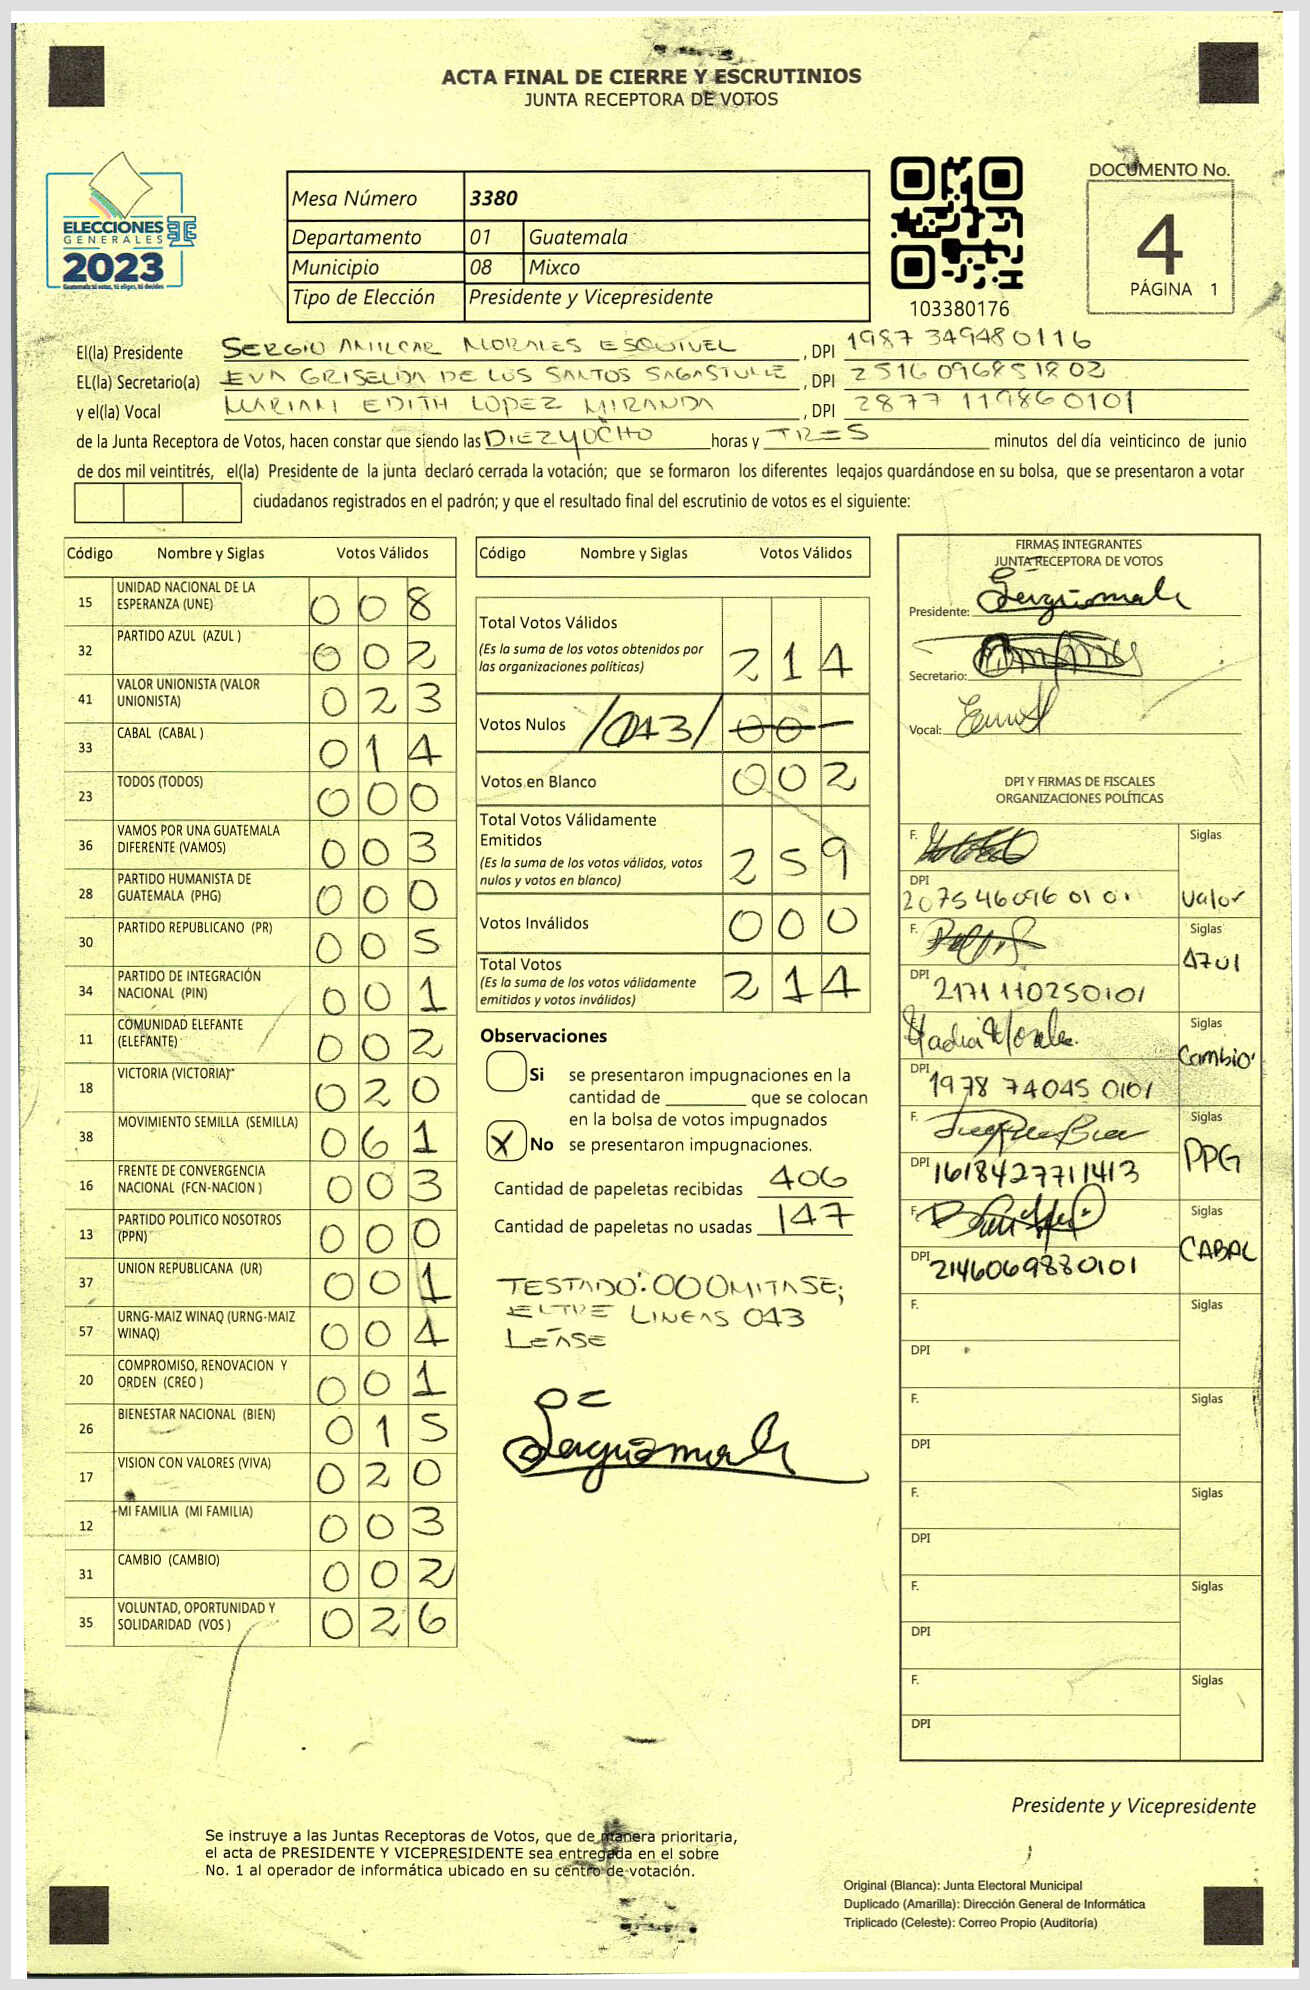 ACTA FINAL DE CIERRE Y ESCRUTINIOS
JUNTA RECEPTORA DE VOTOS
ELECCIONES
GENERALES
2023
Guatemala tú votas, tú eliges, tú decides
Mesa Número 3380
Departamento 01 Guatemala
Municipio 08 Mixco
Tipo de Elección Presidente y Vicepresidente
103380176
DOCUMENTO No.
4
PÁGINA 1
El(la) Presidente SERGIO AMILCAR MORALES ESQUIVEL, DPI 1987 349480116
EL(la) Secretario(a) EVA GRISELDA DE LOS SANTOS SAGASTUME, DPI 2516 096851202
y el(la) Vocal MARIAM EDITH LOPEZ MIRANDA, DPI 2877 119860101
de la Junta Receptora de Votos, hacen constar que siendo las DIEZYOCHO horas y TRES minutos del día veinticinco de junio
de dos mil veintitrés, el(la) Presidente de la junta declaró cerrada la votación; que se formaron los diferentes legajos quardándose en su bolsa, que se presentaron a votar
ciudadanos registrados en el padrón; y que el resultado final del escrutinio de votos es el siguiente:
Código Nombre y Siglas Votos Válidos
15 UNIDAD NACIONAL DE LA ESPERANZA (UNE) 008
32 PARTIDO AZUL (AZUL ) 002
41 VALOR UNIONISTA (VALOR UNIONISTA) 023
33 CABAL (CABAL ) 014
23 TODOS (TODOS) 000
36 VAMOS POR UNA GUATEMALA DIFERENTE (VAMOS) 003
28 PARTIDO HUMANISTA DE GUATEMALA (PHG) 000
30 PARTIDO REPUBLICANO (PR) 005
34 PARTIDO DE INTEGRACIÓN NACIONAL (PIN) 001
11 COMUNIDAD ELEFANTE (ELEFANTE) 002
18 VICTORIA (VICTORIA) 020
38 MOVIMIENTO SEMILLA (SEMILLA) 061
16 FRENTE DE CONVERGENCIA NACIONAL (FCN-NACION ) 003
13 PARTIDO POLITICO NOSOTROS (PPN) 000
37 UNION REPUBLICANA (UR) 001
57 URNG-MAIZ WINAQ (URNG-MAIZ WINAQ) 004
20 COMPROMISO, RENOVACION Y ORDEN (CREO ) 001
26 BIENESTAR NACIONAL (BIEN) 015
17 VISION CON VALORES (VIVA) 020
12 MI FAMILIA (MI FAMILIA) 003
31 CAMBIO (CAMBIO) 002
35 VOLUNTAD, OPORTUNIDAD Y SOLIDARIDAD (VOS ) 026
Código Nombre y Siglas Votos Válidos
Total Votos Válidos 214
(Es la suma de los votos obtenidos por
las organizaciones políticas)
Votos Nulos /043/ 00-
Votos en Blanco 002
Total Votos Válidamente
Emitidos 259
(Es la suma de los votos válidos, votos
nulos y votos en blanco)
Votos Inválidos 000
Total Votos 214
(Es la suma de los votos válidamente
emitidos y votos inválidos)
Observaciones
Si se presentaron impugnaciones en la
cantidad de ________ que se colocan
en la bolsa de votos impugnados
X No se presentaron impugnaciones.
Cantidad de papeletas recibidas 406
Cantidad de papeletas no usadas 147
TESTADO: 000MITASE;
ELTRE LINEAS 043
LEASE
FIRMAS INTEGRANTES
JUNTA RECEPTORA DE VOTOS
Presidente:
Secretario:
Vocal:
DPI Y FIRMAS DE FISCALES
ORGANIZACIONES POLÍTICAS
F. Siglas
DPI 2075 46096 01 Valor
F. Siglas
DPI 2171 110250101 AZUl
F. Nadia Morales Siglas
DPI 1978 74045 0101 Cambio
F. Siglas
DPI 1618427711413 PPG
F. Siglas
DPI 2146069880101 CABAL
F. Siglas
DPI
F. Siglas
DPI
F. Siglas
DPI
F. Siglas
DPI
F. Siglas
DPI
Presidente y Vicepresidente
Se instruye a las Juntas Receptoras de Votos, que de manera prioritaria,
el acta de PRESIDENTE Y VICEPRESIDENTE sea entregada en el sobre
No. 1 al operador de informática ubicado en su centro de votación.
Original (Blanca): Junta Electoral Municipal
Duplicado (Amarilla): Dirección General de Informática
Triplicado (Celeste): Correo Propio (Auditoría)